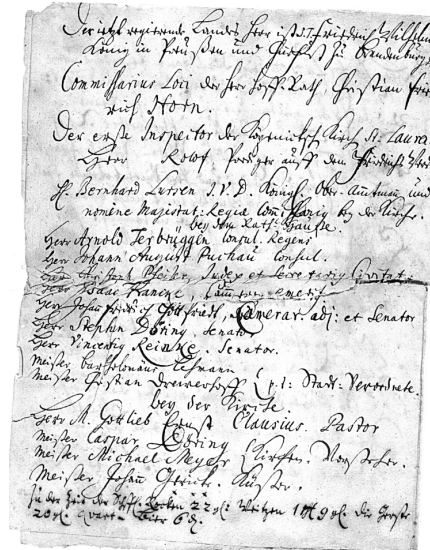 Der itzt regierende Landes Herr ist S.T. Friedrich Wilhelm
König in Preußen und Churfürst zu Brandenburg
Commissarius Loci der Herr Hoff-Rath, Christian Frie
rich Horn.
Der erste Inspector der Köpenickschen Kirch St. Laurent
Herr Rolof, Prediger auff dem Friedrichs
H. Bernhard Lutren I.V.D. Königl. Ober-Amtmann und
nomine Magistrat: Regiæ bey der Kirche.
bey dem Rath-Hause.
Herr Arnold Terbrüggen Consul. Regens
Herr Johann August Puchau Consul.
Pfeiffer, Judex et Secretarius Civitat:
Herr Isaac emerit
Herr Johann Friedrich Gottfriedt, Camerar. adj: et Senator
Herr Stephan Döring, Senator
Herr Vincentz Reinke. Senator.
Meister Bartholomäus Lehmann
Meister Christian Dreuerhoff p.t: Stadt-Verordnete.
bey der Kirche.
Herr M. Gottlieb Ernst Clausius. Pastor
Meister Caspar Döring
Meister Michael Meyer Kirchen-Vorsteher.
Meister Johann Küster.
Zu der Zeit der Roggen 22 gl: Weitzen 1 9 gl die Gerste
20 gl. quart Bier 6 d.